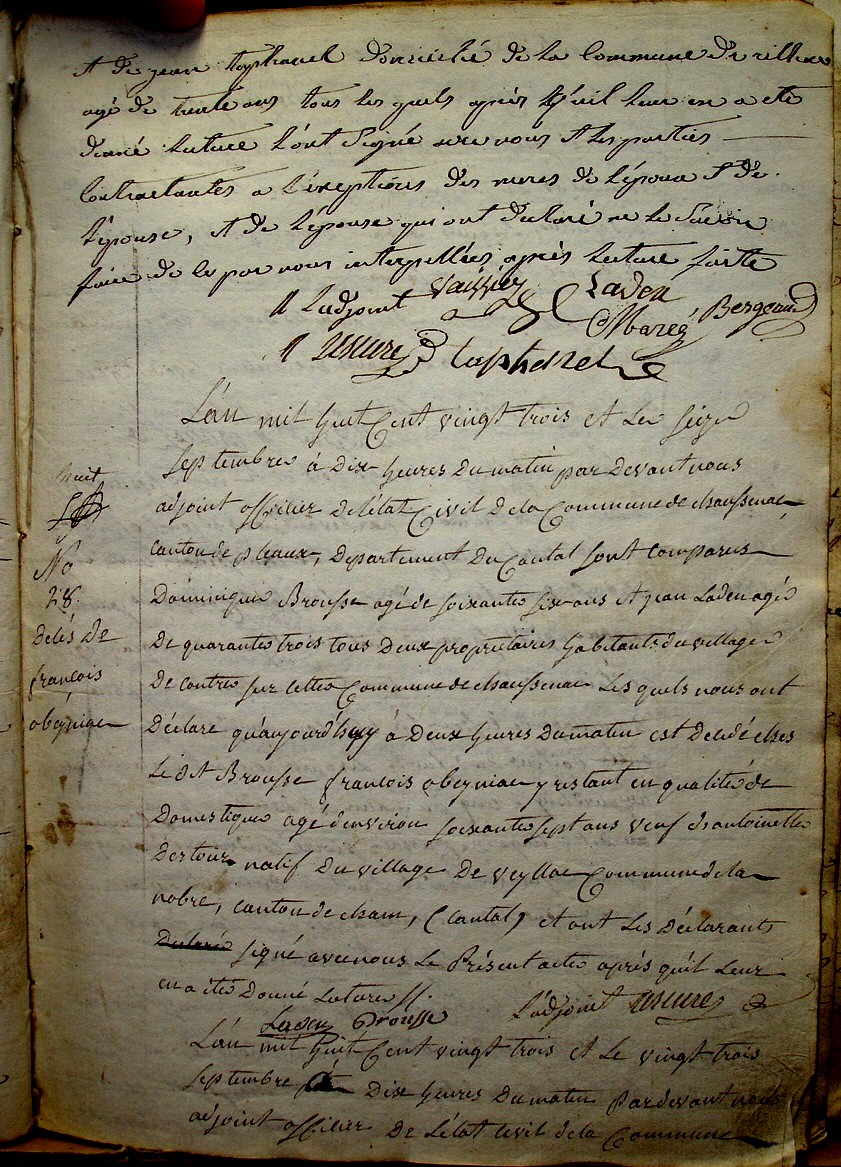 et de jean laphauel domicilié de la Commune de
agé de trente ans tous les quels après qu'il leur en a eté
donné lecture l'ont Signé avec nous et les parties
Contractantes a l'exeptions des meres de l'époux et de
l'épouse, et de l'épouse qui ont declaré ne le Savoir
faire de ce par nous interpellées après lecture faite
l'adjoint Vaissier Laden
Marcé Bergeaud
usure laphazel
L'an mil huit Cent vingt trois et Le seize
Septembre à dix heures du matin par devant nous
adjoint officier de l'état Civil de la Commune de chaussenac
canton de pleaux, Departement du Cantal sont comparus
Dominique Brousse agé de soixante six ans et jean Laden agé
De quarante trois tous Deux proprietaires habitants du village
De contres sur cette Commune de chaussenac Les quels nous ont
Déclaré qu'aujourd'huy à Deux heures du matin est décédé chés
Le dit Brousse françois obeyniac y restant en qualité de
Domestique agé d'environ soixante sept ans veuf d'antoinette
Destour natif du village De veyllac Commune de la
nobre, canton de cham, (Cantal) et ont Les Déclarants
Declaré signé avec nous Le Présent acte après qu'il Leur
en a eté Donné Lecture
Laden Brousse L'adjoint usure
huit
No
28
décés De
françois
obeyniac
L'an mil huit Cent vingt trois et Le vingt trois
Septembre Dix heures Du matin Par devant nous
adjoint officier De L'état civil de la Commune